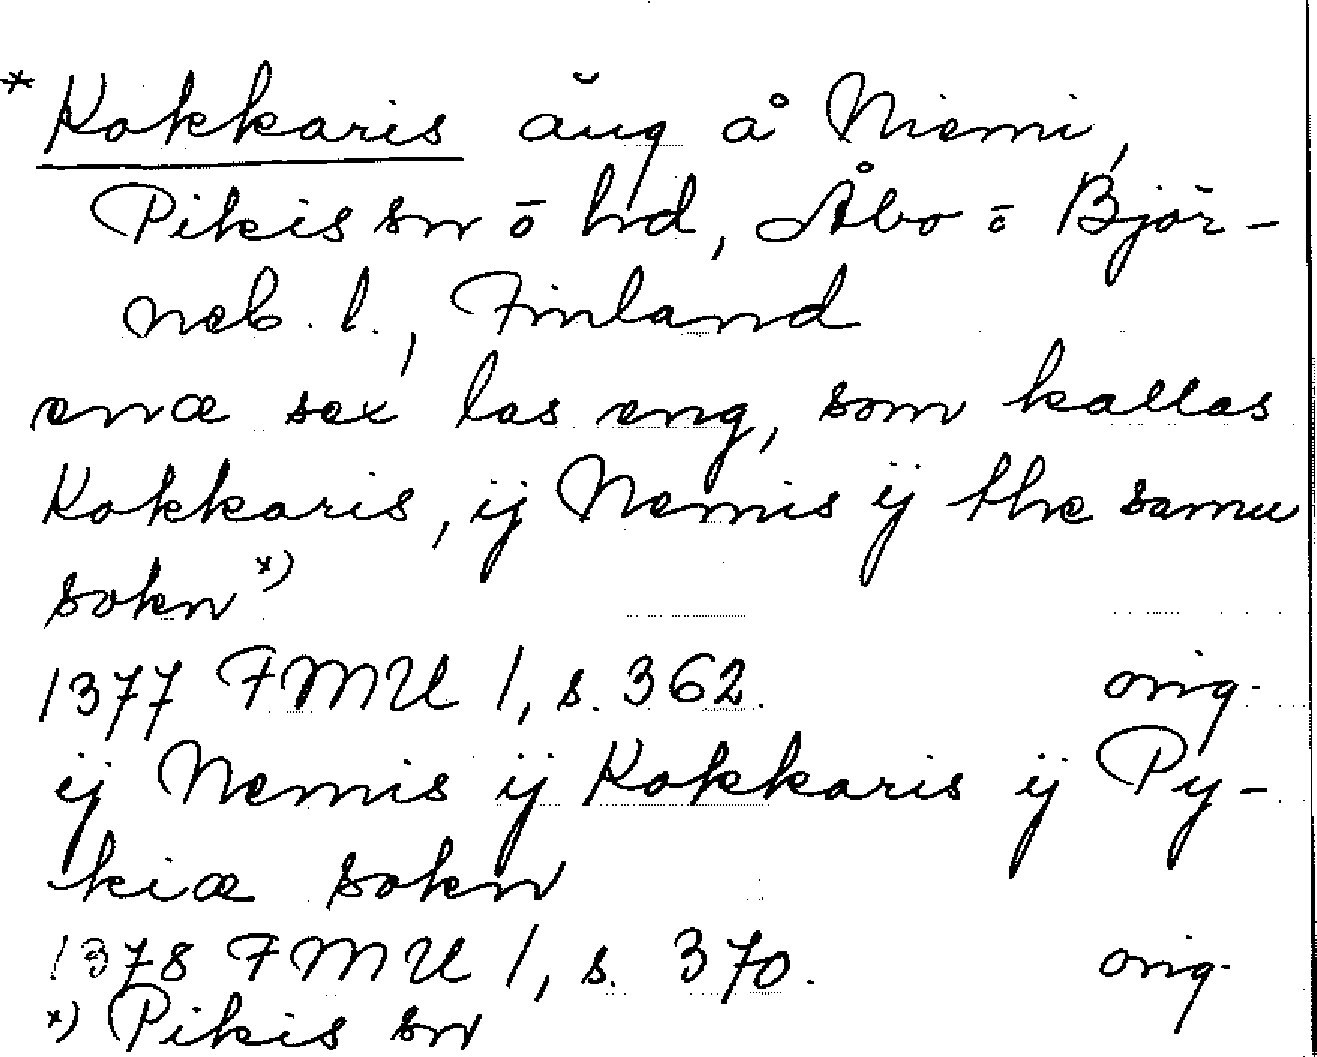 * Kokkaris äng å Niemi,
Pikis sn o hd, Åbo o Björ-
neb. l., Finland
ena sex las eng, som kallas
Kokkaris, ij Nemis ij the samu
sokn x)
1377 FMU 1, s. 362. orig.
ij Nemis ij Kokkaris ij Py-
kiæ sokn
1378 FMU 1, s. 370. orig.
x) Pikis sn